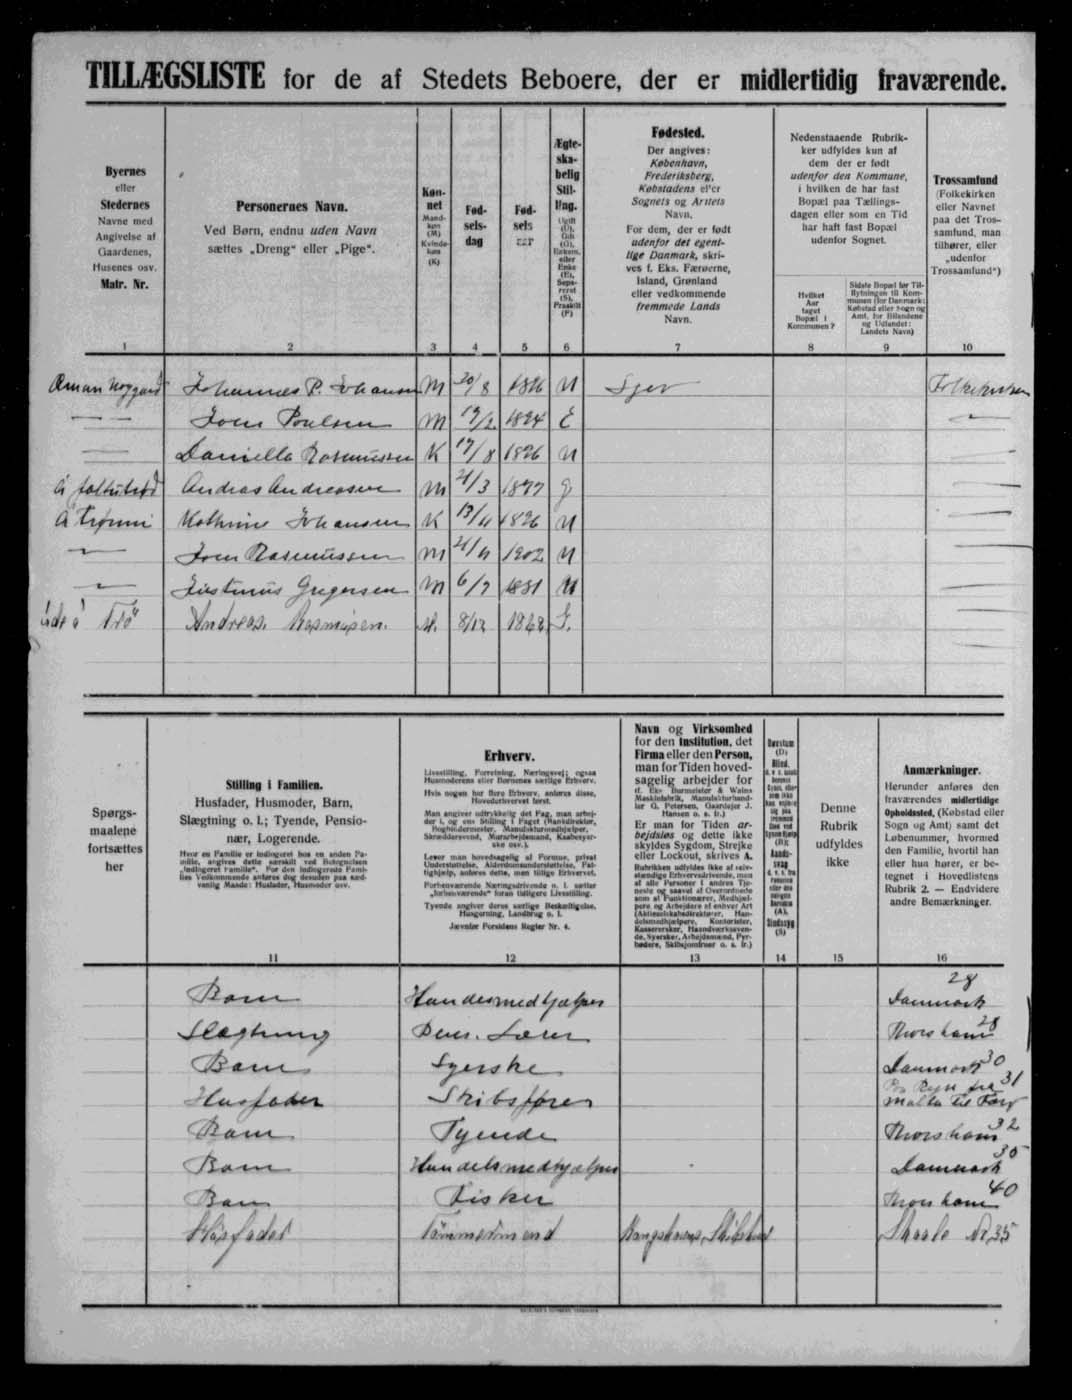 TILLÆGSLISTE for de af Stedets Beboere, der er midlertidig fraværende.
Byernes
eller
Stedernes
Navne med
Angivelse af
Gaardenes,
Husenes osv.
Matr. Nr.
1
Personernes Navn.
Ved Børn, endnu uden Navn
sættes „Dreng“ eller „Pige“.
2
Køn-
net
Mand-
køn
(M)
Kvinde-
køn
(K)
3
Fød-
sels-
dag
4
Fød-
sels
aar
5
Ægte-
ska-
belig
Stil-
ling.
Ugift
(U),
Gift
(G),
Enkem.
eller
Enke
(E),
Sepa-
reret
(S),
Fraskilt
(F)
6
Fødested.
Der angives:
København,
Frederiksberg,
Købstadens eller
Sognets og Amtets
Navn.
For dem, der er født
udenfor det egent-
lige Danmark, skri-
ves f. Eks. Færøerne,
Island, Grønland
eller vedkommende
fremmede Lands
Navn.
7
Nedenstaaende Rubrik-
ker udfyldes kun af
dem der er født
udenfor den Kommune,
i hvilken de har fast
Bopæl paa Tællings-
dagen eller som en Tid
har haft fast Bopæl
udenfor Sognet.
Hvilket
Aar
taget
Bopæl i
Kommunen?
8
Sidste Bopæl før Til-
flytningen til Kom-
munen (for Danmark:
Købstad eller Sogn og
Amt, for Bilandene
og Udlandet:
Landets Navn)
9
Trossamfund
(Folkekirken
eller Navnet
paa det Tros-
samfund, man
tilhører, eller
„udenfor
Trossamfund“)
10
Johannes P. Johansen M 20/8 1886 U
Joen Poulsen M 19/2 1824 E
Daniella Rasmussen K 17/8 1896 U
Andreas Andreasen M 21/3 1877 G
Kathrine Johansen K 13/11 1896 U
Joen Rasmussen M 21/11 1902 U
Justinus Gregersen M 6/7 1881 U
Andreas Rasmusen. M. 8/12 1868 G.
Spørgs-
maalene
fortsættes
her
Stilling i Familien.
Husfader, Husmoder, Barn,
Slægtning o. l.; Tyende, Pensio-
nær, Logerende.
Hvor en Familie er indlogeret hos en anden Fa-
milie, angives dette særskilt ved Betegnelsen
„indlogeret Familie“. For den indlogerede Fami-
lies Vedkommende anføres dog desuden paa sæd-
vanlig Maade: Husfader, Husmoder osv.
11
Erhverv.
Livsstilling, Forretning, Næringsvej; ogsaa
Husmoderens eller Børnenes særlige Erhverv.
Hvis nogen har flere Erhverv, anføres disse,
Hovederhvervet først.
Man angiver udtrykkelig det Fag, man arbej-
der i, og ens Stilling i Faget (Bankdirektør,
Bogholdermester, Manufakturmedhjælper,
Skræddersvend, Murarbejdsmand, Kaabesyer-
ske osv.).
Lever man hovedsagelig af Formue, privat
Understøttelse, Alderdomsunderstøttelse, Fat-
tighjælp, anføres dette, men tillige Erhvervet.
Forhenværende Næringsdrivende o. l. sætter
„forhenværende“ foran tidligere Livsstilling.
Tyende angiver deres særlige Beskæftigelse,
Husgerning, Landbrug o. l.
Jævnfør Forsidens Regler Nr. 4.
12
Navn og Virksomhed
for den Institution, det
Firma eller den Person,
man for Tiden hoved-
sagelig arbejder for
(f. Eks. Burmeister & Wains
Maskinfabrik, Manufakturhand-
ler G. Petersen, Gaardejer J.
Hansen o. s. fr.)
Er man for Tiden ar-
bejdsløs og dette ikke
skyldes Sygdom, Strejke
eller Lockout, skrives A.
Rubrikken udfyldes ikke af selv-
stændige Erhvervsdrivende, men
af alle Personer i andres Tje-
neste og saavel af Overordnede
som af Funktionærer, Medhjæl-
pere og Arbejdere af enhver Art
(Aktieselskabsdirektører, Han-
delsmedhjælpere, Kontorister,
Kassererske, Haandværkssven-
de, Syersker, Arbejdsmænd, Fyr-
bødere, Skibsjomfruer o. s. fr.)
13
Døvstum
(D)
Blind,
14
Denne
Rubrik
udfyldes
ikke
15
Anmærkninger.
Herunder anføres den
fraværendes midlertidige
Opholdssted, (Købstad eller
Sogn og Amt) samt det
Løbenummer, hvormed
den Familie, hvortil han
eller hun hører, er be-
tegnet i Hovedlistens
Rubrik 2. — Endvidere
andre Bemærkninger.
16
Barn Handelsmedhjælper Danmark 28
Slægtning Pens. Lærer Thorshavn 28
Barn Syerske Danmark 30
Husfader Skibsfører 31
Barn Tyende Thorshavn 32
Barn Handelsmedhjælper Danmark 35
Barn Fisker Thorshavn 40
Husfader Tömmermend Skaale Nr 35